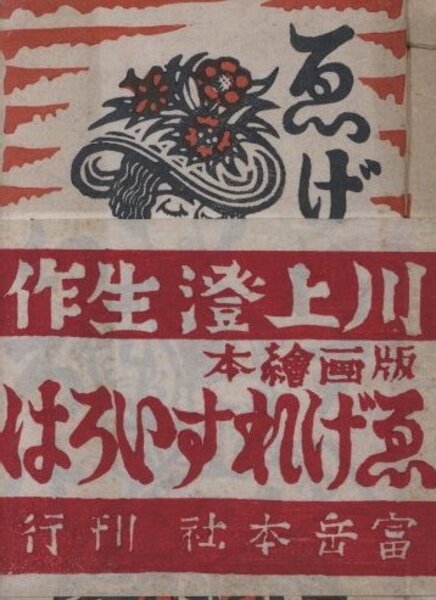 ゑげ
川上澄生作
版画繪本
ゑげれすいろは
富岳本社刊行